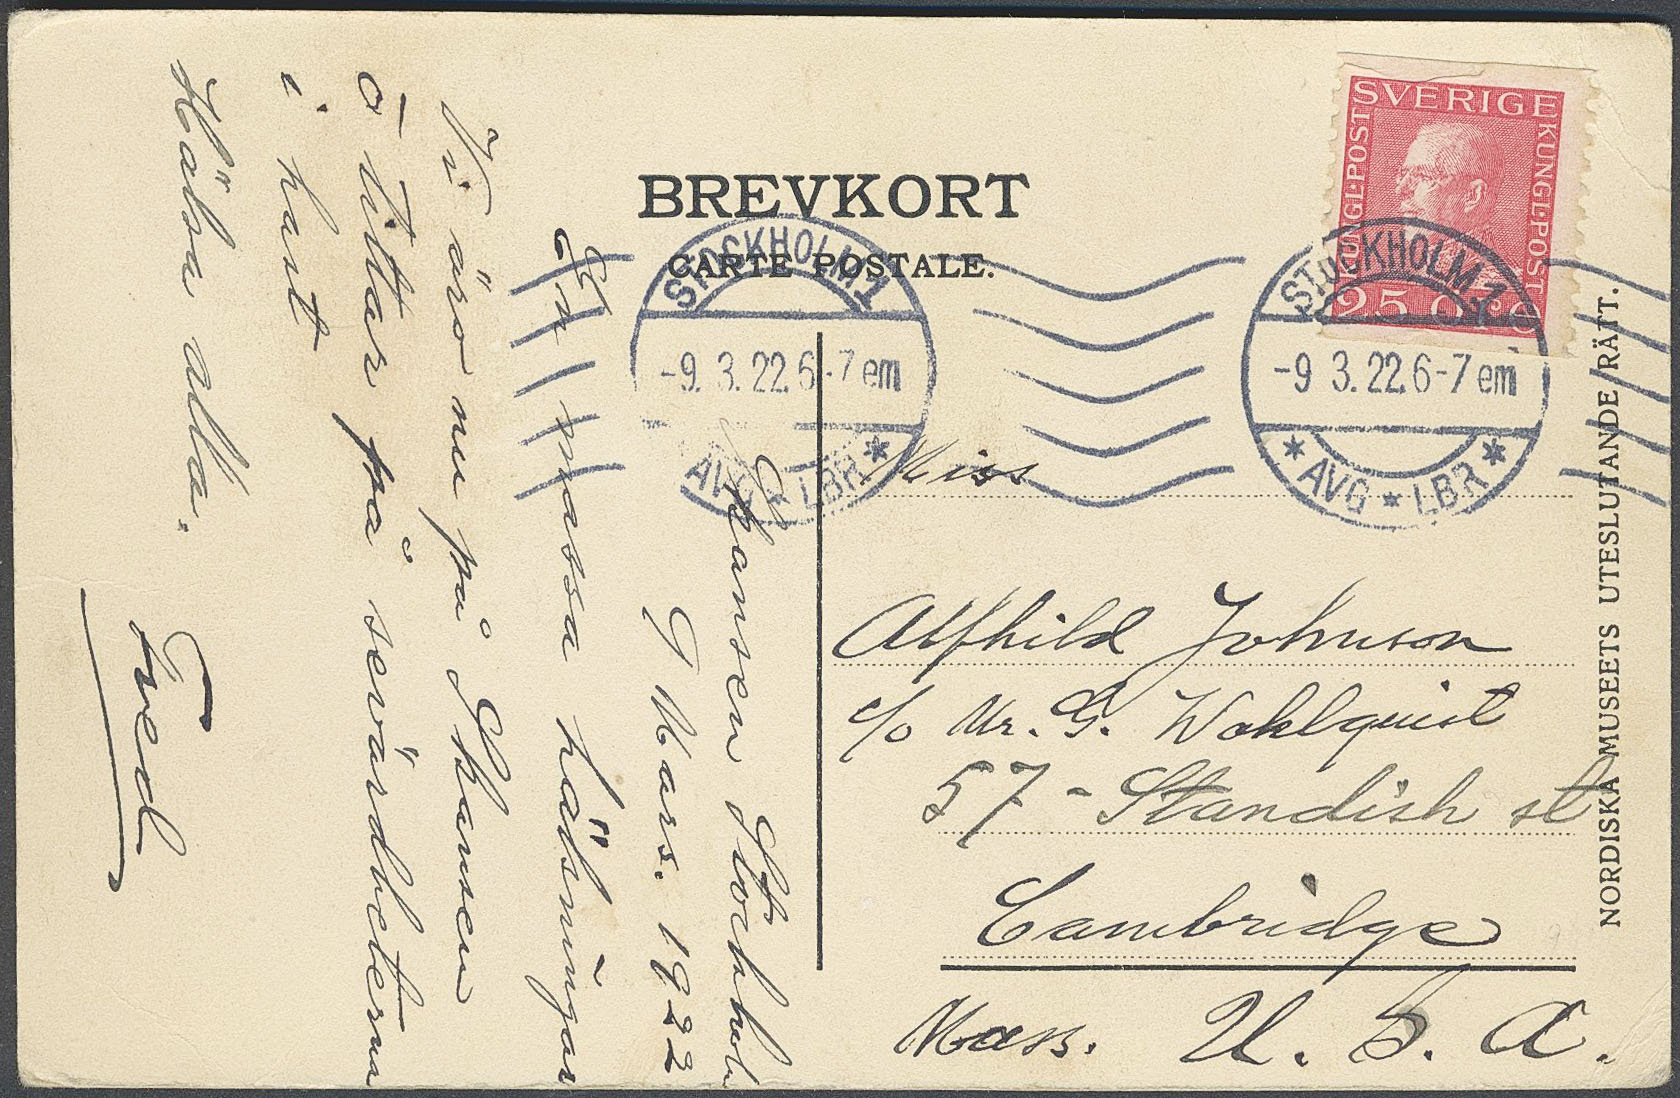 BREVKORT
CARTE POSTALE.
SVERIGE
KUNGL·POST
KUNGL·POST
25 ÖRE
STOCKHOLM 1
-9. 3. 22. 6-7 em
AVG ★ LBR
STOCKHOLM 1
-9 3. 22. 6-7 em
* AVG ★ LBR *
Skansen Stockholm
9 Mars. 1922
En massa hälsningar
Vi äro nu på Skansen
o tittar på sevärdheterna
i hast
Hälsa alla.
Fred
Miss
Alfhild Johnson
c/o Mr. G. Wahlquist
57 - Standish st
Cambridge
Mass. U. S. A.
NORDISKA MUSEETS UTESLUTANDE RÄTT.